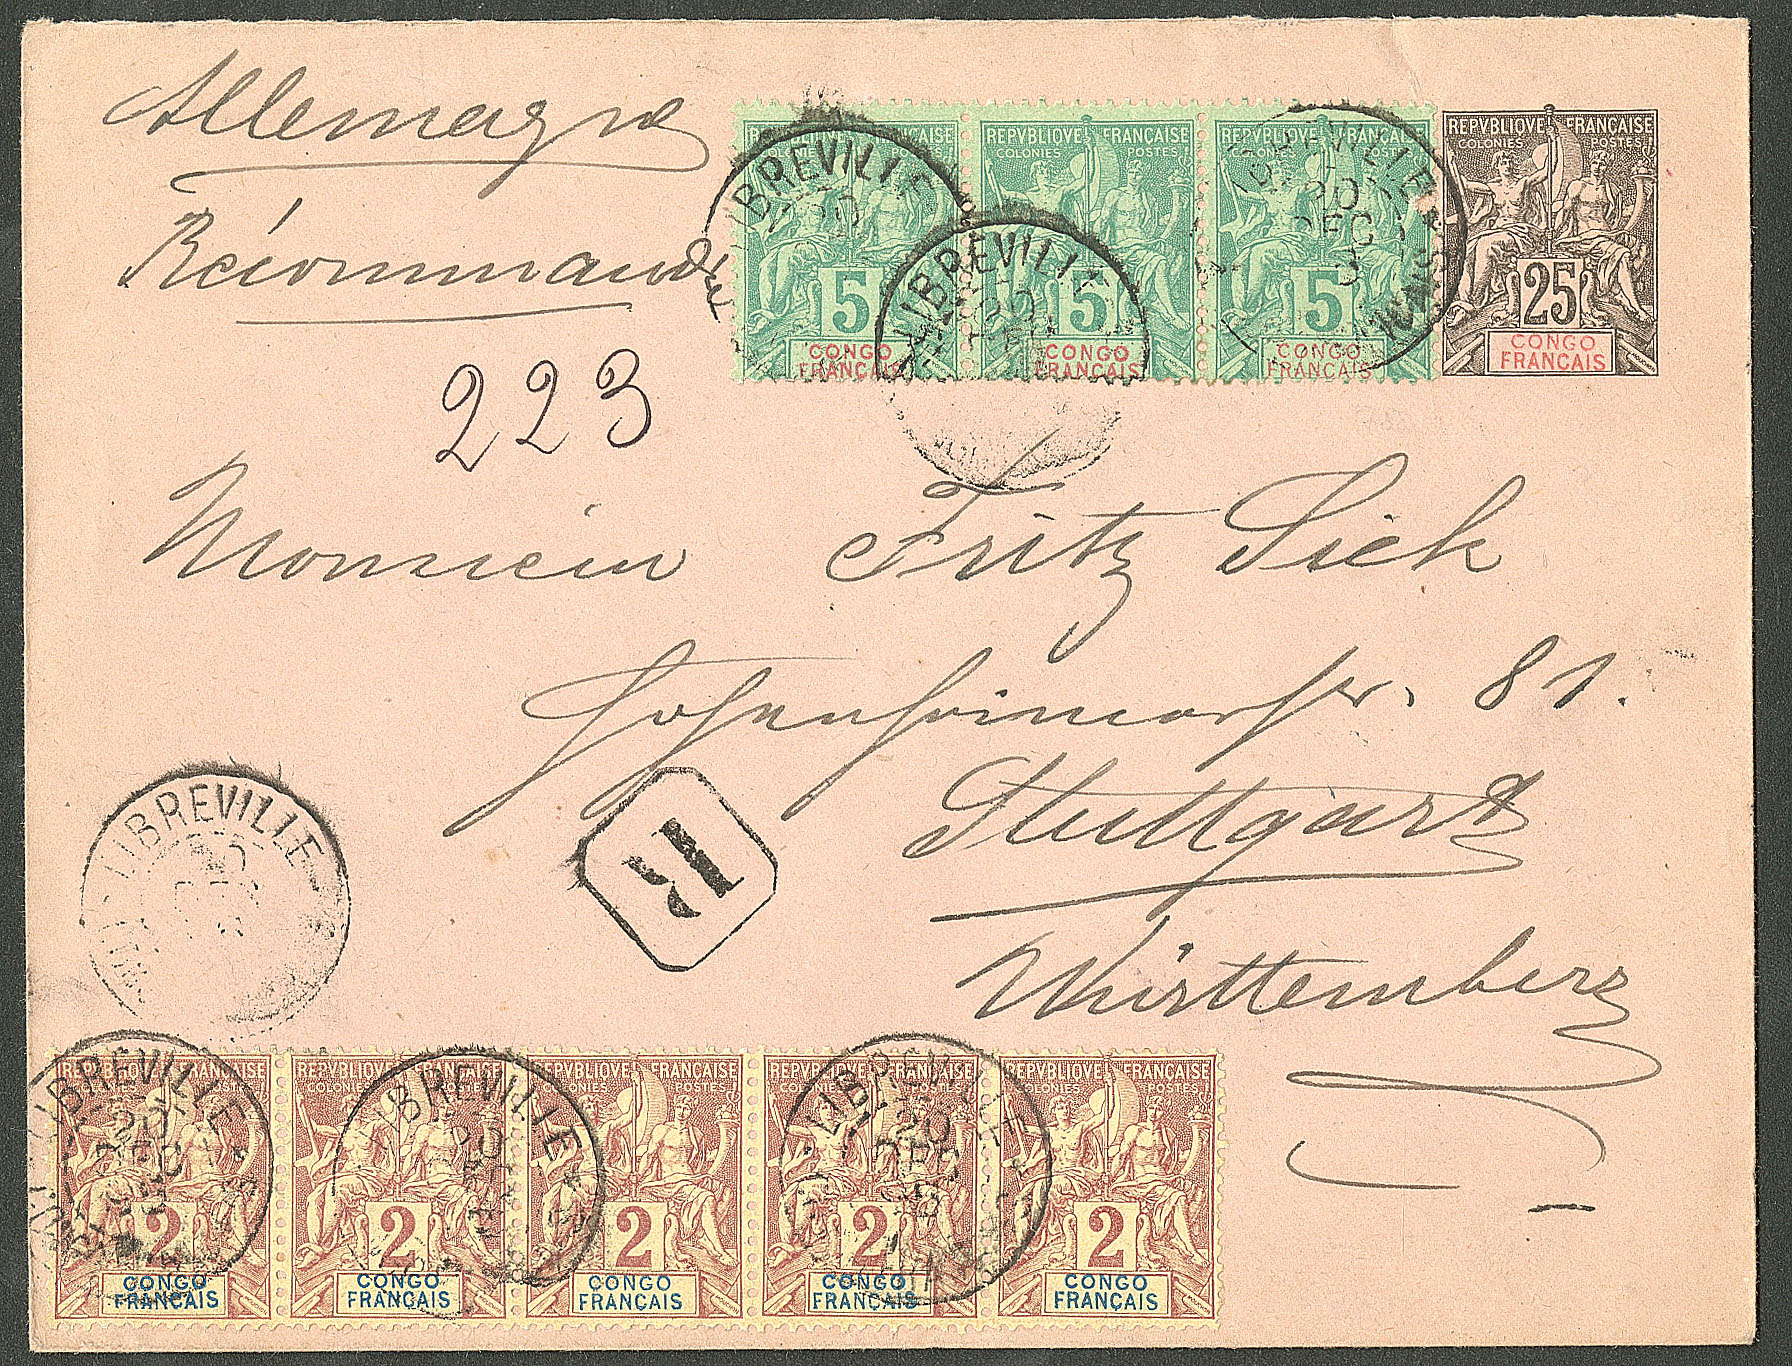 Allemagne
Recommandé
223
REPVBLIQVE FRANÇAISE
COLONIES POSTES
5
CONGO
FRANÇAIS
REPVBLIQVE FRANÇAISE
COLONIES POSTES
5
CONGO
FRANÇAIS
REPVBLIQVE FRANÇAISE
COLONIES POSTES
5
CONGO
FRANÇAIS
REPVBLIQVE FRANÇAISE
COLONIES POSTES
25
CONGO
FRANÇAIS
LIBREVILLE
20
LIBREVILLE
20
LIBREVILLE
20
DEC
Monsieur Fritz Sick
81.
Stuttgart
Württemberg
R
LIBREVILLE
REPVBLIQVE FRANÇAISE
COLONIES POSTES
2
CONGO
FRANÇAIS
REPVBLIQVE FRANÇAISE
COLONIES POSTES
2
CONGO
FRANÇAIS
REPVBLIQVE FRANÇAISE
COLONIES POSTES
2
CONGO
FRANÇAIS
REPVBLIQVE FRANÇAISE
COLONIES POSTES
2
CONGO
FRANÇAIS
REPVBLIQVE FRANÇAISE
COLONIES POSTES
2
CONGO
FRANÇAIS
LIBREVILLE
20
DEC
LIBREVILLE
20
LIBREVILLE
20
DEC